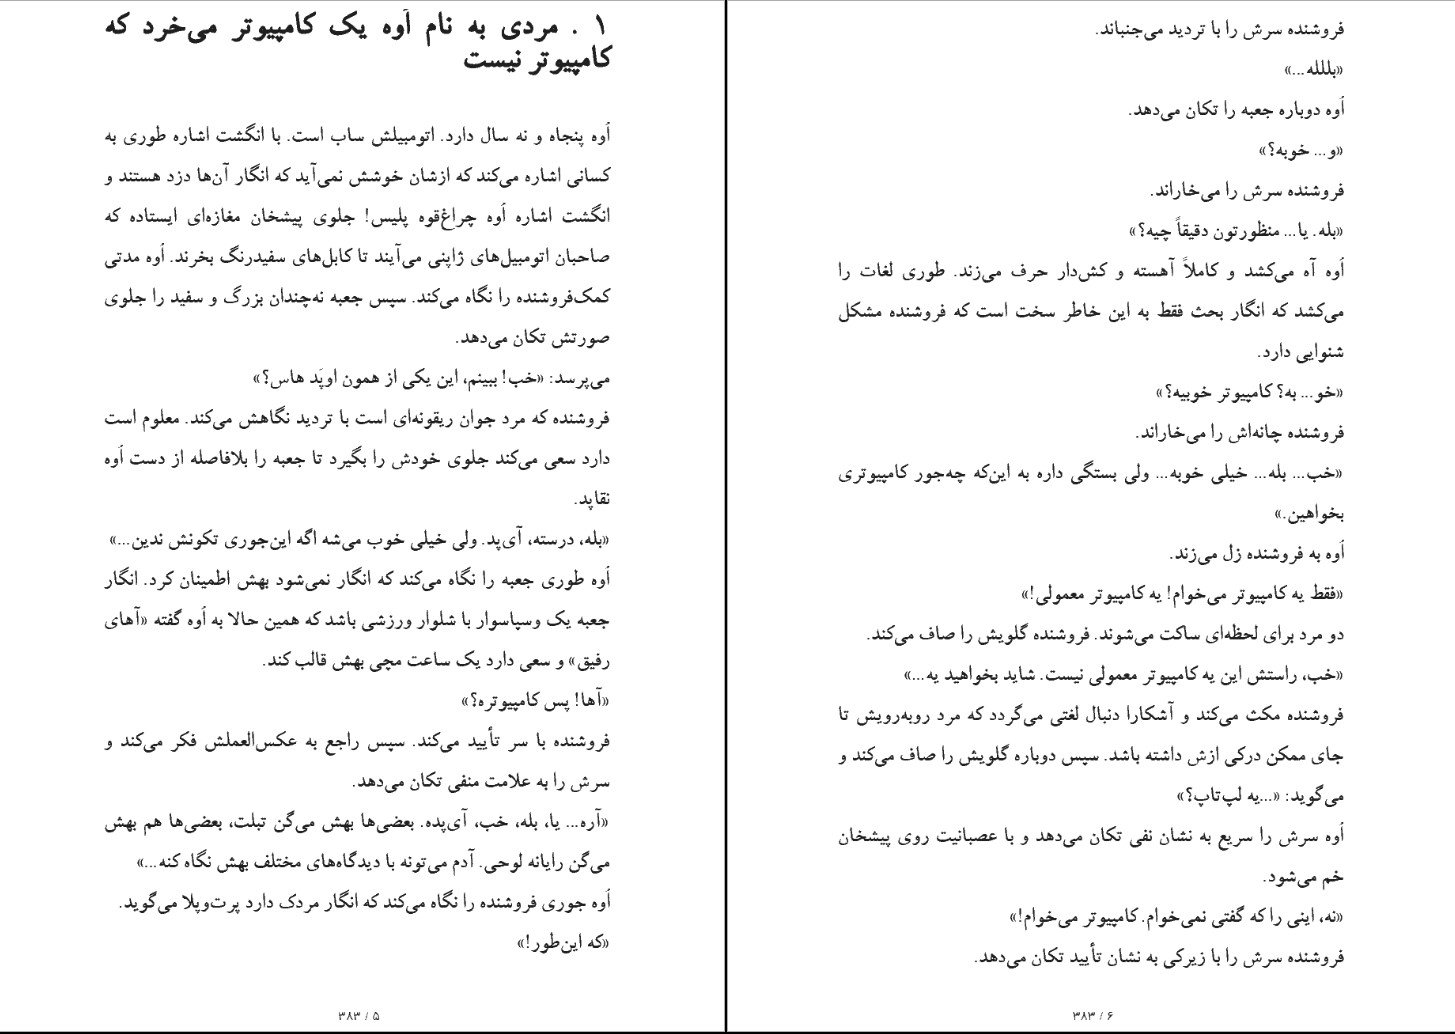 ۱ . مردی به نام اُوه یک کامپیوتر می‌خرد که
کامپیوتر نیست
اُوه پنجاه و نه سال دارد. اتومبیلش ساب است. با انگشت اشاره طوری به
کسانی اشاره می‌کند که ازشان خوشش نمی‌آید که انگار آن‌ها دزد هستند و
انگشت اشاره اُوه چراغ‌قوه پلیس! جلوی پیشخان مغازه‌ای ایستاده که
صاحبان اتومبیل‌های ژاپنی می‌آیند تا کابل‌های سفیدرنگ بخرند. اُوه مدتی
کمک‌فروشنده را نگاه می‌کند. سپس جعبه نه‌چندان بزرگ و سفید را جلوی
صورتش تکان می‌دهد.
می‌پرسد: «خب! ببینم، این یکی از همون اوپَد هاس؟»
فروشنده که مرد جوان ریقونه‌ای است با تردید نگاهش می‌کند. معلوم است
دارد سعی می‌کند جلوی خودش را بگیرد تا جعبه را بلافاصله از دست اُوه
نقاپد.
«بله، درسته، آی‌پد. ولی خیلی خوب می‌شه اگه این‌جوری تکونش ندین...»
اُوه طوری جعبه را نگاه می‌کند که انگار نمی‌شود بهش اطمینان کرد. انگار
جعبه یک وسپاسوار با شلوار ورزشی باشد که همین حالا به اُوه گفته «آهای
رفیق» و سعی دارد یک ساعت مچی بهش قالب کند.
«آها! پس کامپیوتره؟»
فروشنده با سر تأیید می‌کند. سپس راجع به عکس‌العملش فکر می‌کند و
سرش را به علامت منفی تکان می‌دهد.
«آره... یا، بله، خب، آی‌پده. بعضی‌ها بهش می‌گن تبلت، بعضی‌ها هم بهش
می‌گن رایانه لوحی. آدم می‌تونه با دیدگاه‌های مختلف بهش نگاه کنه...»
اُوه جوری فروشنده را نگاه می‌کند که انگار مردک دارد پرت‌وپلا می‌گوید.
«که این‌طور!»
۵ / ۳۸۳
فروشنده سرش را با تردید می‌جنباند.
«بلللـه...»
اُوه دوباره جعبه را تکان می‌دهد.
«و... خوبه؟»
فروشنده سرش را می‌خاراند.
«بله. یا... منظورتون دقیقاً چیه؟»
اُوه آه می‌کشد و کاملاً آهسته و کش‌دار حرف می‌زند. طوری لغات را
می‌کشد که انگار بحث فقط به این خاطر سخت است که فروشنده مشکل
شنوایی دارد.
«خو... به؟ کامپیوتر خوبیه؟»
فروشنده چانه‌اش را می‌خاراند.
«خب... بله... خیلی خوبه... ولی بستگی داره به این‌که چه‌جور کامپیوتری
بخواهین.»
اُوه به فروشنده زل می‌زند.
«فقط یه کامپیوتر می‌خوام! یه کامپیوتر معمولی!»
دو مرد برای لحظه‌ای ساکت می‌شوند. فروشنده گلویش را صاف می‌کند.
«خب، راستش این یه کامپیوتر معمولی نیست. شاید بخواهید یه...»
فروشنده مکث می‌کند و آشکارا دنبال لغتی می‌گردد که مرد روبه‌رویش تا
جای ممکن درکی ازش داشته باشد. سپس دوباره گلویش را صاف می‌کند و
می‌گوید: «...یه لپ‌تاپ؟»
اُوه سرش را سریع به نشان نفی تکان می‌دهد و با عصبانیت روی پیشخان
خم می‌شود.
«نه، اینی را که گفتی نمی‌خوام. کامپیوتر می‌خوام!»
فروشنده سرش را با زیرکی به نشان تأیید تکان می‌دهد.
۶ / ۳۸۳